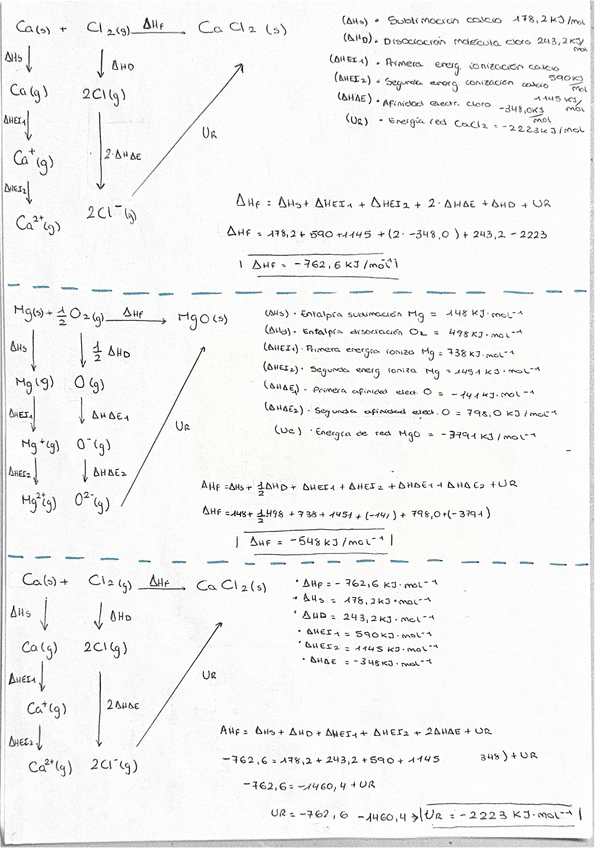 Ca(s) + Cl₂(g) ΔHf → CaCl₂(s)
ΔHs ΔHD
Ca(g) 2Cl(g)
ΔHEI1
2·ΔHAE UR
Ca⁺(g)
ΔHEI2
Ca²⁺(g) 2Cl⁻(g)
(ΔHs) · Sublimación calcio 178,2 kJ/mol
(ΔHD) · Disociación molécula cloro 243,2 kJ/mol
(ΔHEI1) · Primera energ ionización calcio 590 kJ/mol
(ΔHEI2) · Segunda energ ionización calcio 1145 kJ/mol
(ΔHAE) · Afinidad electr. cloro -348,0 kJ/mol
(UR) · Energía red CaCl₂ = -2223 kJ/mol
ΔHf = ΔHs + ΔHEI1 + ΔHEI2 + 2·ΔHAE + ΔHD + UR
ΔHf = 178,2 + 590 + 1145 + (2·-348,0) + 243,2 - 2223
ΔHf = -762,6 KJ/mol⁻¹
Mg(s) + 1/2 O₂(g) ΔHf → MgO(s)
ΔHs 1/2 ΔHD
Mg(g) O(g)
ΔHEI1 ΔHAE1
UR
Mg⁺(g) O⁻(g)
ΔHEI2 ΔHAE2
Mg²⁺(g) O²⁻(g)
(ΔHs) · Entalpía sublimación Mg = 148 KJ·mol⁻¹
(ΔHd) · Entalpía disociación O₂ = 498 KJ·mol⁻¹
(ΔHEI1) · Primera energía ioniza Mg = 738 KJ·mol⁻¹
(ΔHEI2) · Segunda energ ioniza Mg = 1451 KJ·mol⁻¹
(ΔHAE1) · Primera afinidad elect. O = -141 KJ·mol⁻¹
(ΔHAE2) · Segunda afinidad elect. O = 798,0 KJ/mol⁻¹
(Ue) · Energía de red MgO = -3791 KJ/mol⁻¹
ΔHf = ΔHs + 1/2 ΔHD + ΔHEI1 + ΔHEI2 + ΔHAE1 + ΔHAE2 + UR
ΔHf = 148 + 1/2 498 + 738 + 1451 + (-141) + 798,0 + (-3791)
ΔHf = -548 KJ/mol⁻¹
Ca(s) + Cl₂(g) ΔHf → CaCl₂(s)
ΔHs ΔHD
Ca(g) 2Cl(g)
ΔHEI1 UR
Ca⁺(g) 2ΔHAE
ΔHEI2
Ca²⁺(g) 2Cl⁻(g)
· ΔHf = -762,6 KJ·mol⁻¹
· ΔHs = 178,2 KJ·mol⁻¹
· ΔHD = 243,2 KJ·mol⁻¹
· ΔHEI1 = 590 KJ·mol⁻¹
· ΔHEI2 = 1145 KJ·mol⁻¹
· ΔHAE = -348 KJ·mol⁻¹
ΔHf = ΔHs + ΔHD + ΔHEI1 + ΔHEI2 + 2ΔHAE + UR
-762,6 = 178,2 + 243,2 + 590 + 1145 348) + UR
-762,6 = -1460,4 + UR
UR = -762,6 -1460,4 → UR = -2223 KJ·mol⁻¹